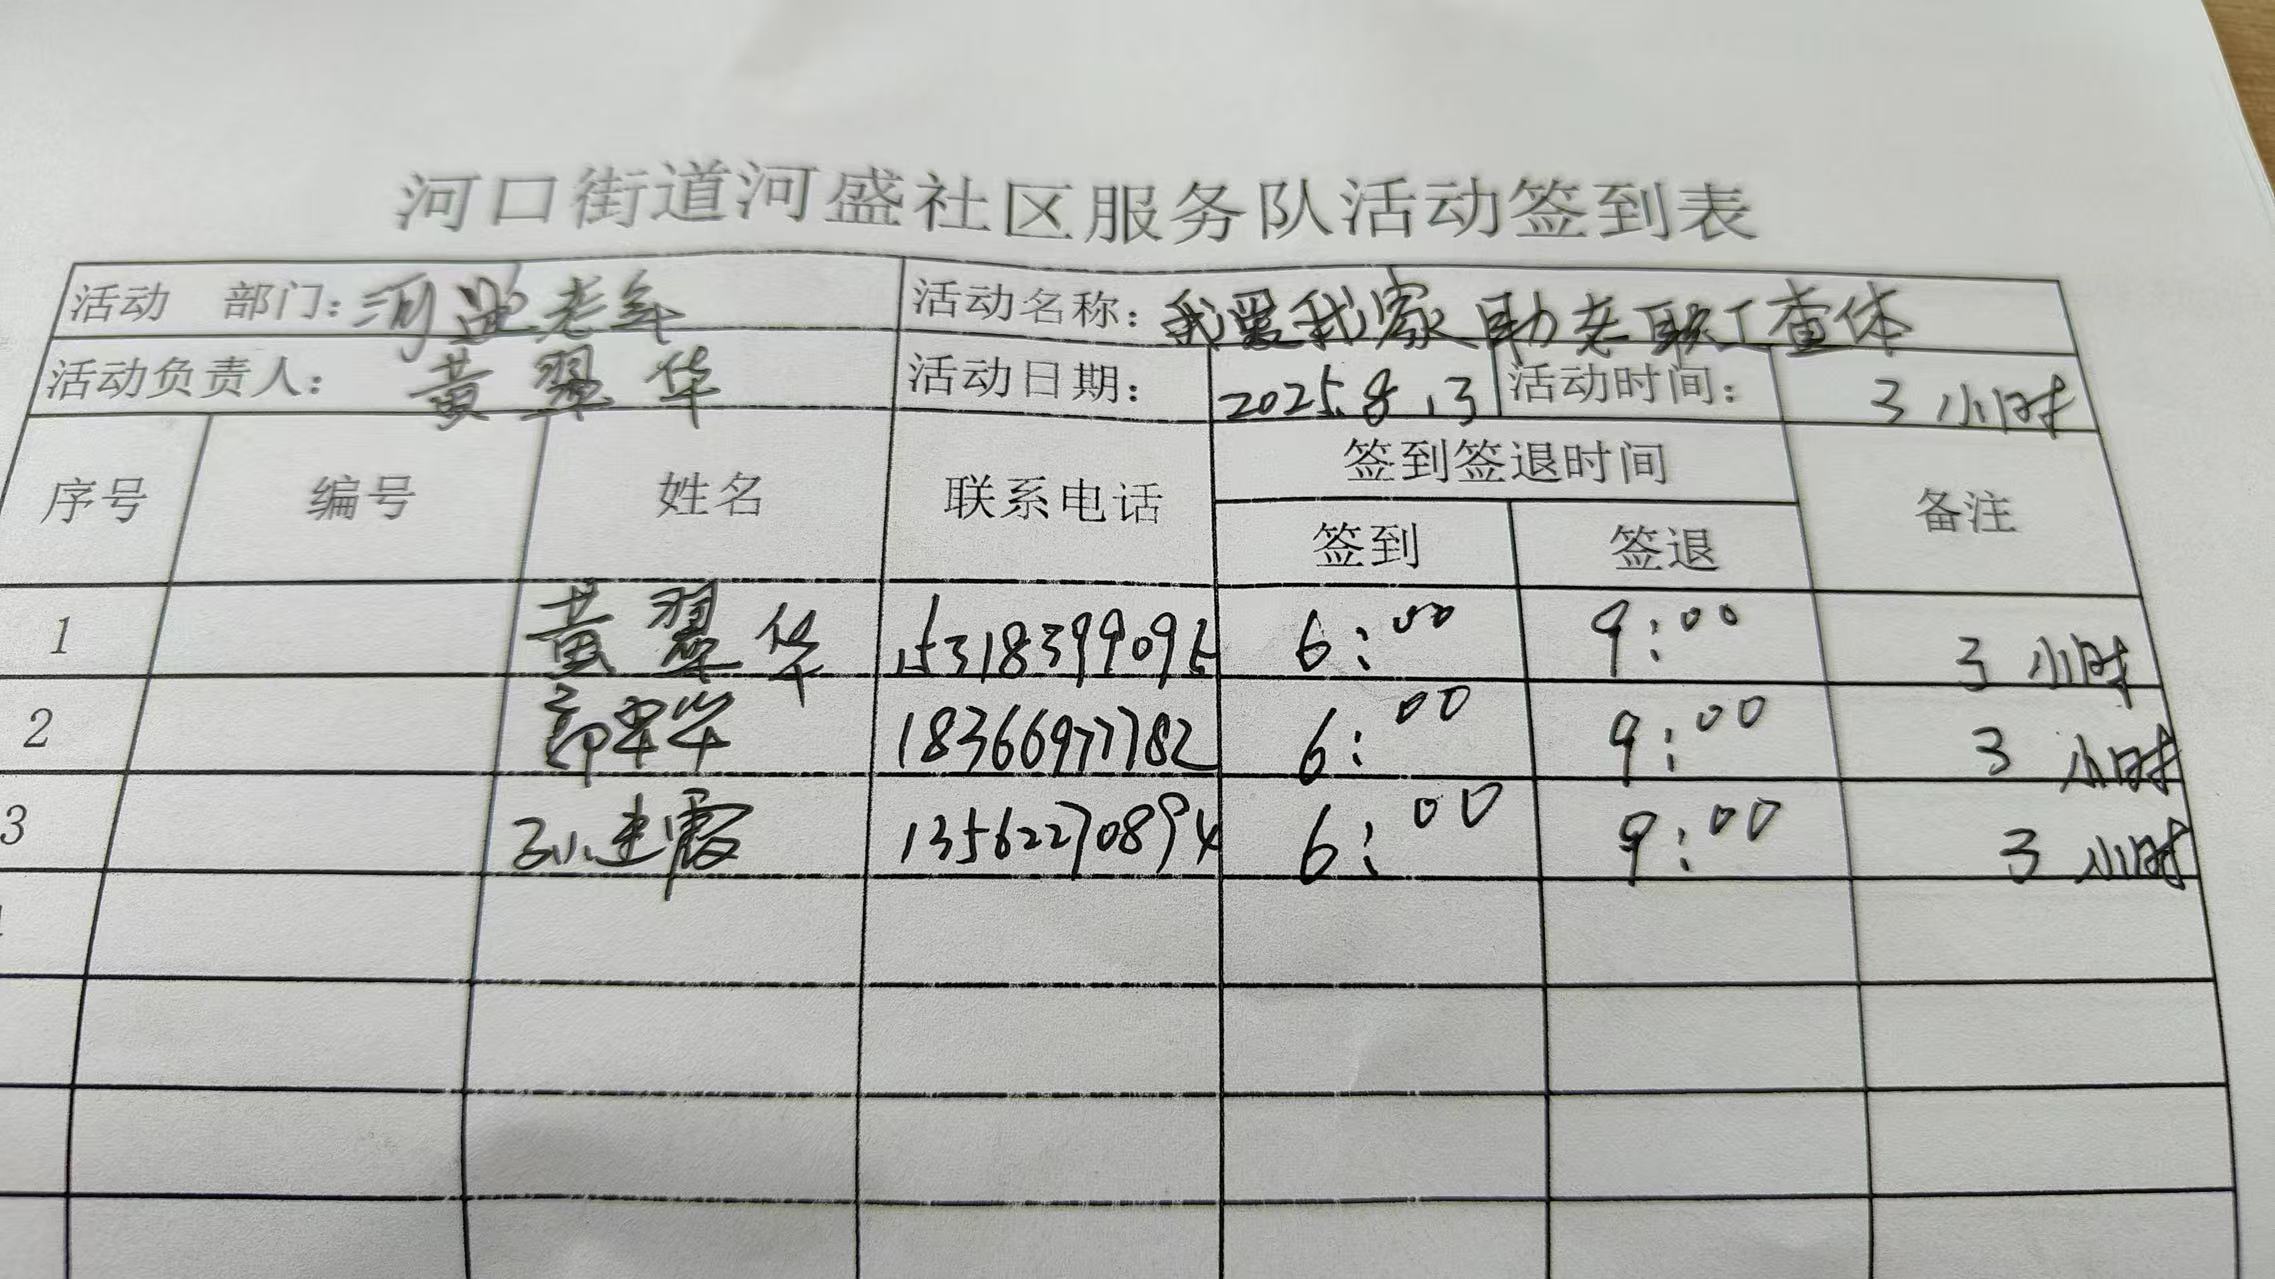 河口街道河盛社区服务队活动签到表
活动 部门：河 老年 活动名称：我爱我家助老职工查体
活动负责人：黄翠华 活动日期：2025.8.13 活动时间：3小时
序号 编号 姓名 联系电话 签到签退时间 备注
签到 签退
1 黄翠华 15318399095 6:00 9:00 3小时
2 翠华 18366977782 6:00 9:00 3小时
3 孙建霞 13562270894 6:00 9:00 3小时